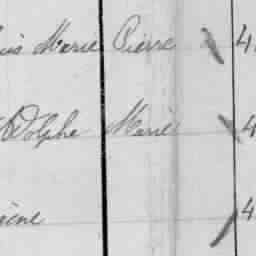 uis Marie Pierre 4
Adolphe Marie 4
gène 4